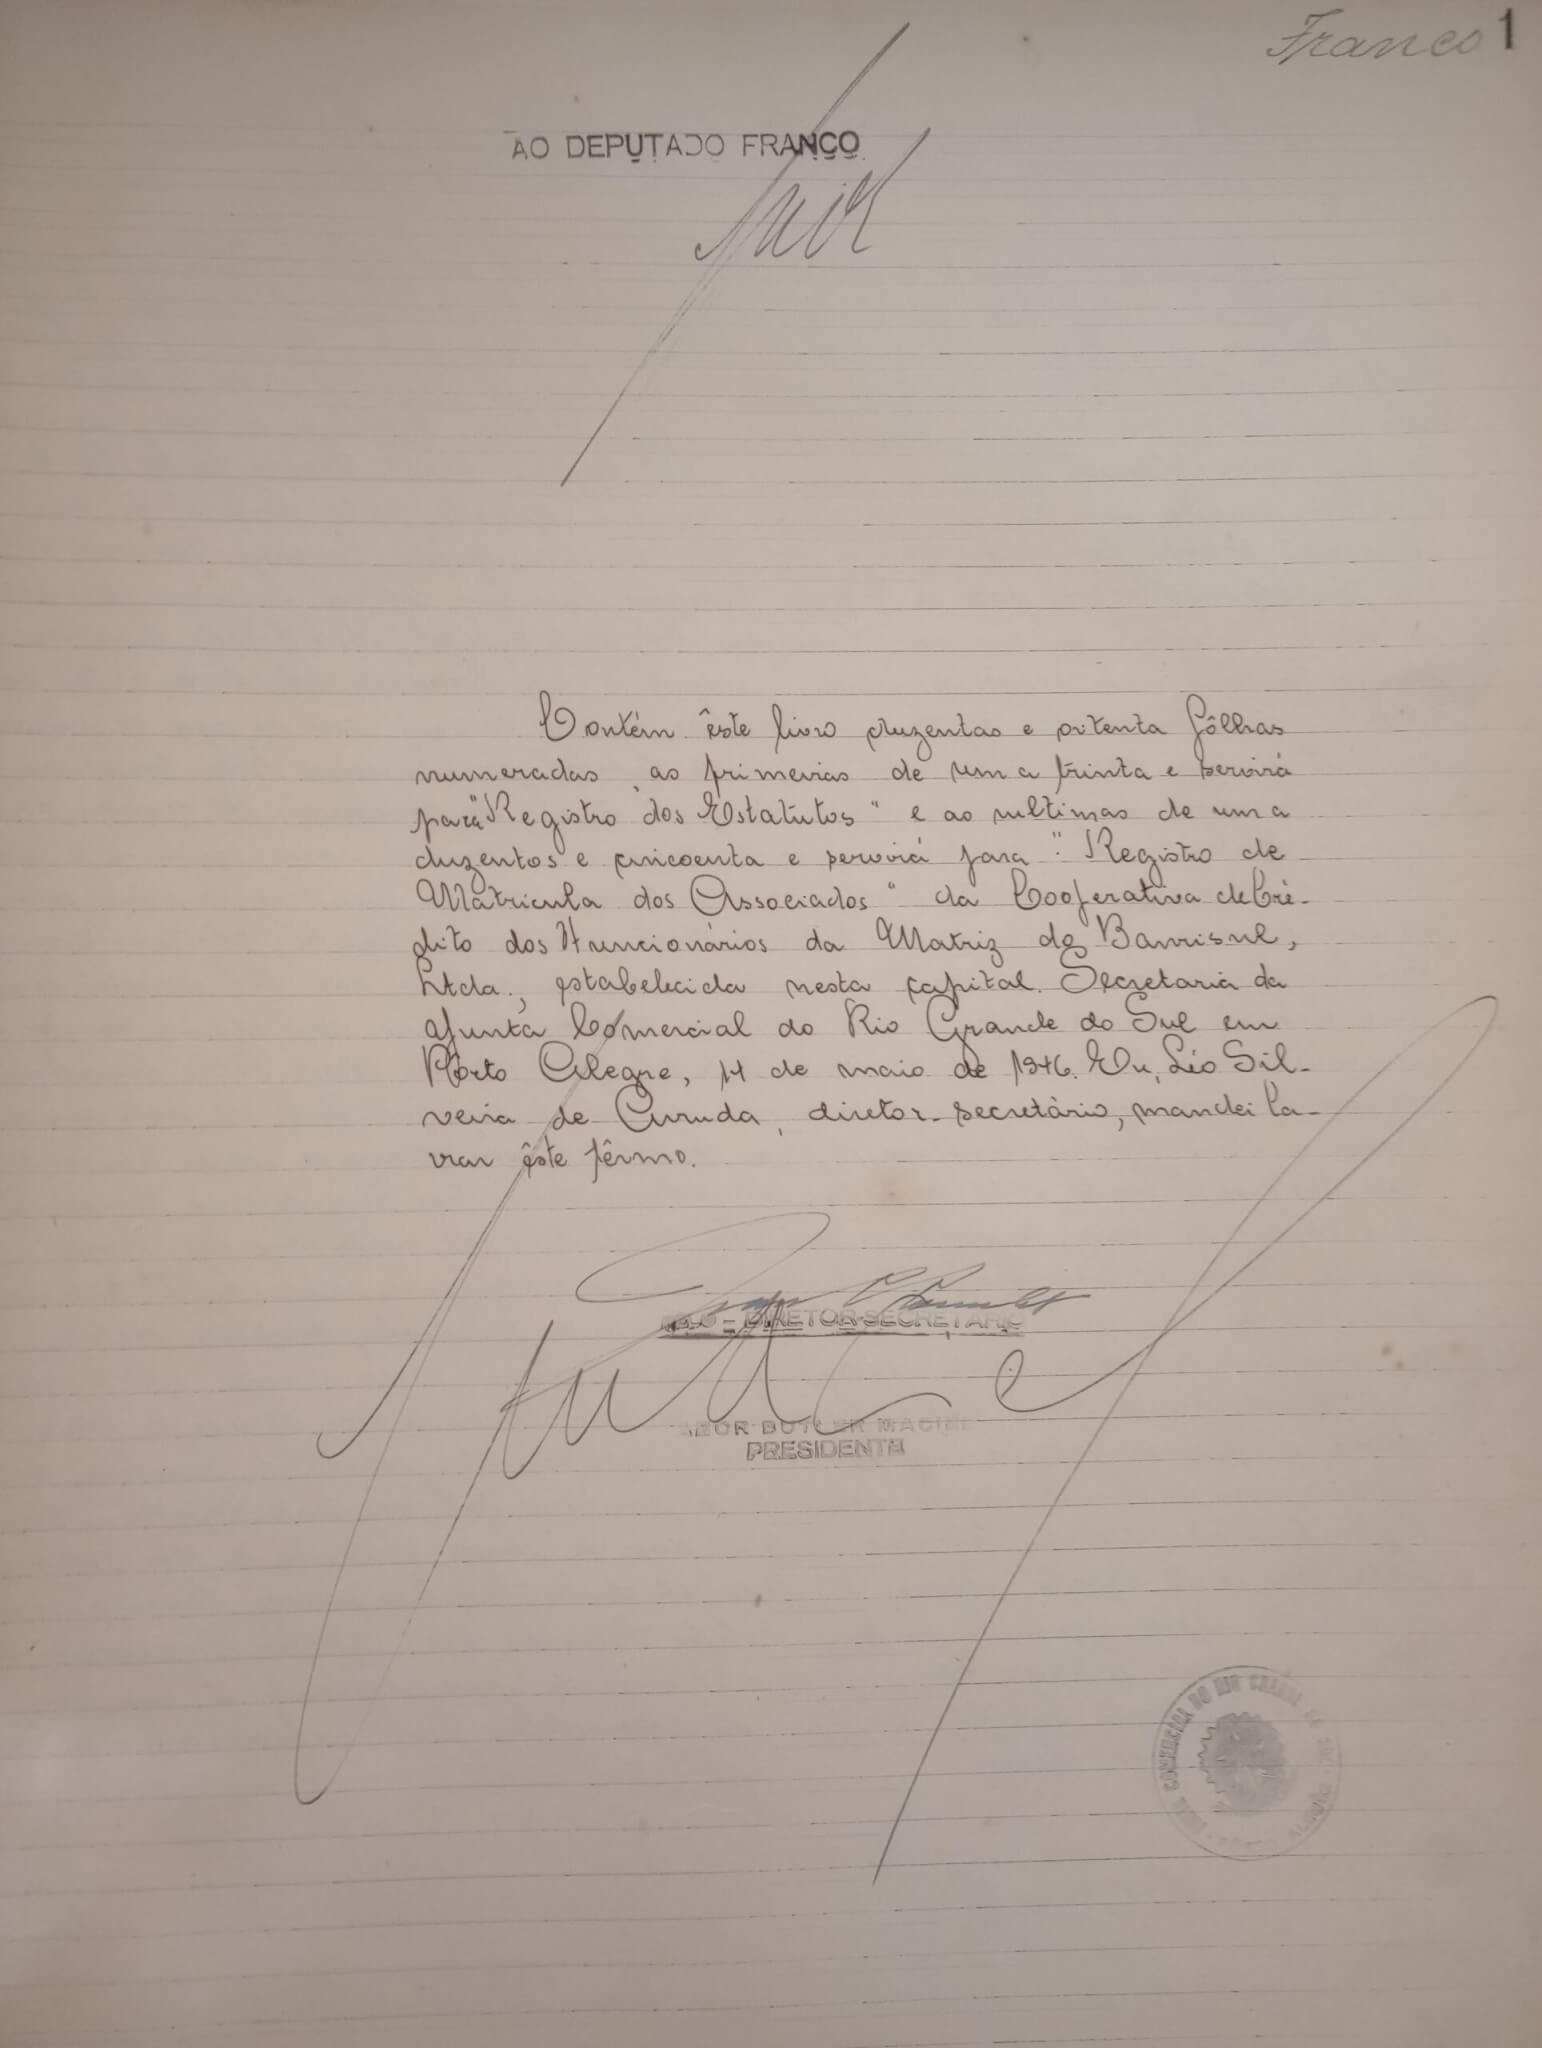 Franco 1
AO DEPUTADO FRANCO
Contém êste livro duzentas e oitenta fôlhas
numeradas, as primeiras de um a trinta e servirá
para "Registro dos Estatutos" e as ultimas de um a
duzentos e cincoenta e servirá para "Registro de
Matricula dos Associados" da Cooperativa de Cré-
dito dos Funcionários da Matriz do Banrisul,
Ltda., estabelecida nesta capital. Secretaria da
Junta Comercial do Rio Grande do Sul em
Pôrto Alegre, 14 de maio de 1946. Eu, Léo Sil-
veira de Arruda, diretor-secretário, mandei la-
vrar êste têrmo.
DIRETOR-SECRETÁRIO
BUTLER MACIEL
PRESIDENTE
COMERCIAL DO RIO GRANDE DO